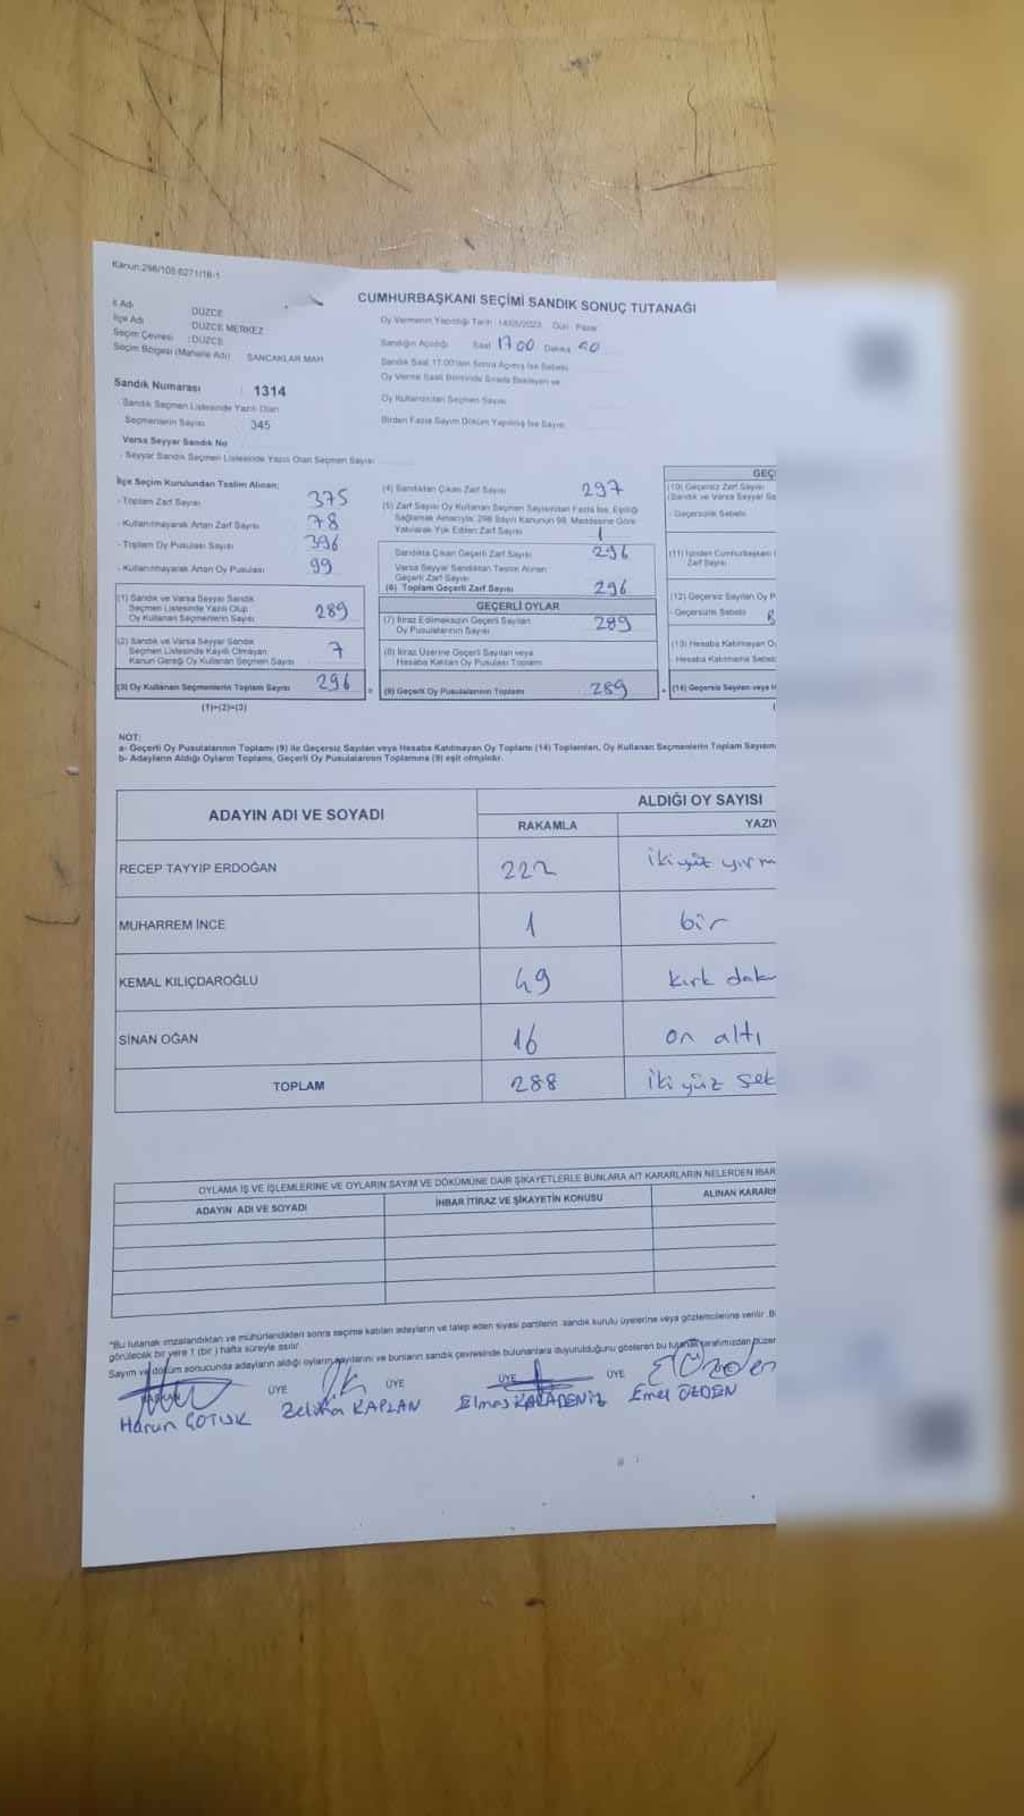 Kanun:298/105 6271/18-1
CUMHURBAŞKANI SEÇİMİ SANDIK SONUÇ TUTANAĞI
İl Adı DÜZCE
İlçe Adı DÜZCE MERKEZ
Seçim Çevresi : DÜZCE
Seçim Bölgesi (Mahalle Adı) SANCAKLAR MAH
Oy Vermenin Yapıldığı Tarih 14/05/2023 Gün Pazar
Sandığın Açıldığı Saat 17 00 Dakika
Sandık Saat 17:00'den Sonra Açılmış İse Sebebi
Oy Verme Saati Bitiminde Sırada Bekleyen ve
Oy Kullandırılan Seçmen Sayısı
Birden Fazla Sayım Döküm Yapılmış İse Sayısı
Sandık Numarası : 1314
- Sandık Seçmen Listesinde Yazılı Olan
Seçmenlerin Sayısı 345
Varsa Seyyar Sandık No
- Seyyar Sandık Seçmen Listesinde Yazılı Olan Seçmen Sayısı
İlçe Seçim Kurulundan Teslim Alınan;
- Toplam Zarf Sayısı 375
- Kullanılmayarak Artan Zarf Sayısı 78
- Toplam Oy Pusulası Sayısı 396
- Kullanılmayarak Artan Oy Pusulası 99
(1) Sandık ve Varsa Seyyar Sandık
Seçmen Listesinde Yazılı Olup
Oy Kullanan Seçmenlerin Sayısı 289
(2) Sandık ve Varsa Seyyar Sandık
Seçmen Listesinde Kayıtlı Olmayan
Kanun Gereği Oy Kullanan Seçmen Sayısı 7
(3) Oy Kullanan Seçmenlerin Toplam Sayısı 296
(1)+(2)=(3)
(4) Sandıktan Çıkan Zarf Sayısı 297
(5) Zarf Sayısı Oy Kullanan Seçmen Sayısından Fazla İse, Eşitliği
Sağlamak Amacıyla; 298 Sayılı Kanunun 98. Maddesine Göre
Yakılarak Yok Edilen Zarf Sayısı 1
Sandıkta Çıkan Geçerli Zarf Sayısı 296
Varsa Seyyar Sandıktan Teslim Alınan
Geçerli Zarf Sayısı
(6) Toplam Geçerli Zarf Sayısı 296
GEÇERLİ OYLAR
(7) İtiraz Edilmeksizin Geçerli Sayılan
Oy Pusulalarının Sayısı 289
(8) İtiraz Üzerine Geçerli Sayılan veya
Hesaba Katılan Oy Pusulası Toplamı
(9) Geçerli Oy Pusulalarının Toplamı 289
GEÇ
(10) Geçersiz Zarf Sayısı
(Sandık ve Varsa Seyyar Sa
- Geçersizlik Sebebi
(11) İçinden Cumhurbaşkanı
Zarf Sayısı
(12) Geçersiz Sayılan Oy P
- Geçersizlik Sebebi
(13) Hesaba Katılmayan O
- Hesaba Katılmama Sebeb
(14) Geçersiz Sayılan veya H
NOT:
a- Geçerli Oy Pusulalarının Toplamı (9) ile Geçersiz Sayılan veya Hesaba Katılmayan Oy Toplamı (14) Toplamları, Oy Kullanan Seçmenlerin Toplam Sayısın
b- Adayların Aldığı Oyların Toplamı, Geçerli Oy Pusulalarının Toplamına (9) eşit olmalıdır.
ADAYIN ADI VE SOYADI ALDIĞI OY SAYISI
RAKAMLA YAZIY
RECEP TAYYIP ERDOĞAN 222 iki yüz yirm
MUHARREM İNCE 1 bir
KEMAL KILIÇDAROĞLU 49 kırk dok
SİNAN OĞAN 16 on altı
TOPLAM 288 iki yüz sek
OYLAMA İŞ VE İŞLEMLERİNE VE OYLARIN SAYIM VE DÖKÜMÜNE DAİR ŞİKAYETLERLE BUNLARA AİT KARARLARIN NELERDEN İBAR
ADAYIN ADI VE SOYADI İHBAR İTİRAZ VE ŞİKAYETİN KONUSU ALINAN KARARIN
*Bu tutanak imzalandıktan ve mühürlendikten sonra seçime katılan adayların ve talep eden siyasi partilerin sandık kurulu üyelerine veya gözlemcilerine verilir. B
görülecek bir yere 1 (bir) hafta süreyle asılır.
Sayım ve döküm sonucunda adayların aldığı oyların sayılarını ve bunların sandık çevresinde bulunanlara duyurulduğunu gösteren bu tutanak tarafımızdan düzen
BAŞKAN ÜYE ÜYE ÜYE ÜYE
Harun ÇOTUK Zeliha KAPLAN Elmas KARADENİZ Emel ÖZDEN